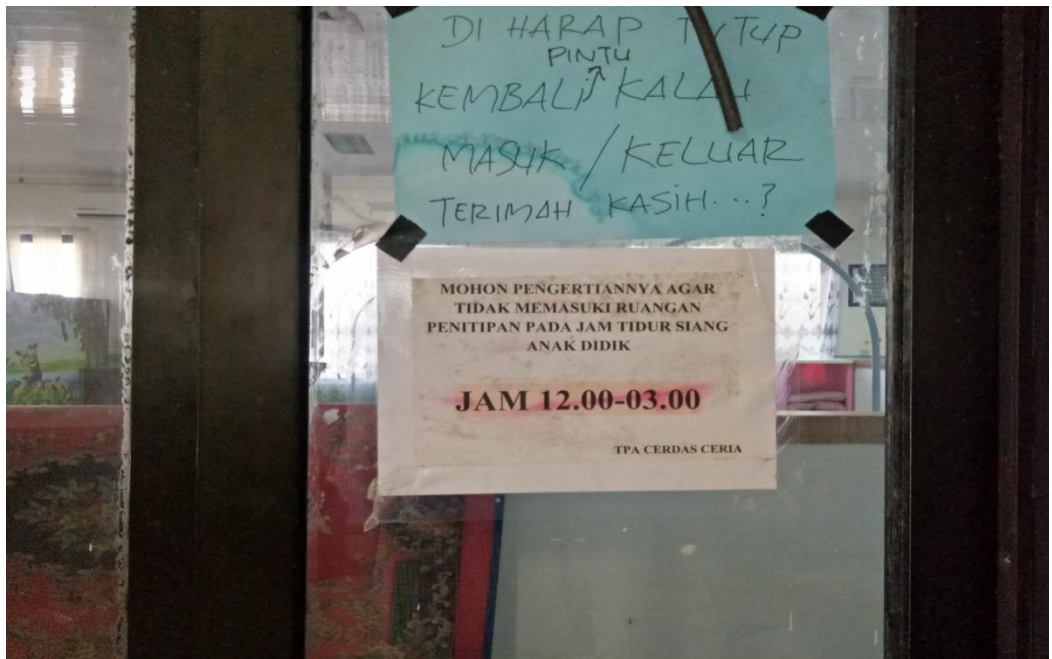 DI HARAP TUTUP
PINTU
KEMBALI KALAU
MASUK / KELUAR
TERIMAH KASIH...?
MOHON PENGERTIANNYA AGAR
TIDAK MEMASUKI RUANGAN
PENITIPAN PADA JAM TIDUR SIANG
ANAK DIDIK
JAM 12.00-03.00
TPA CERDAS CERIA